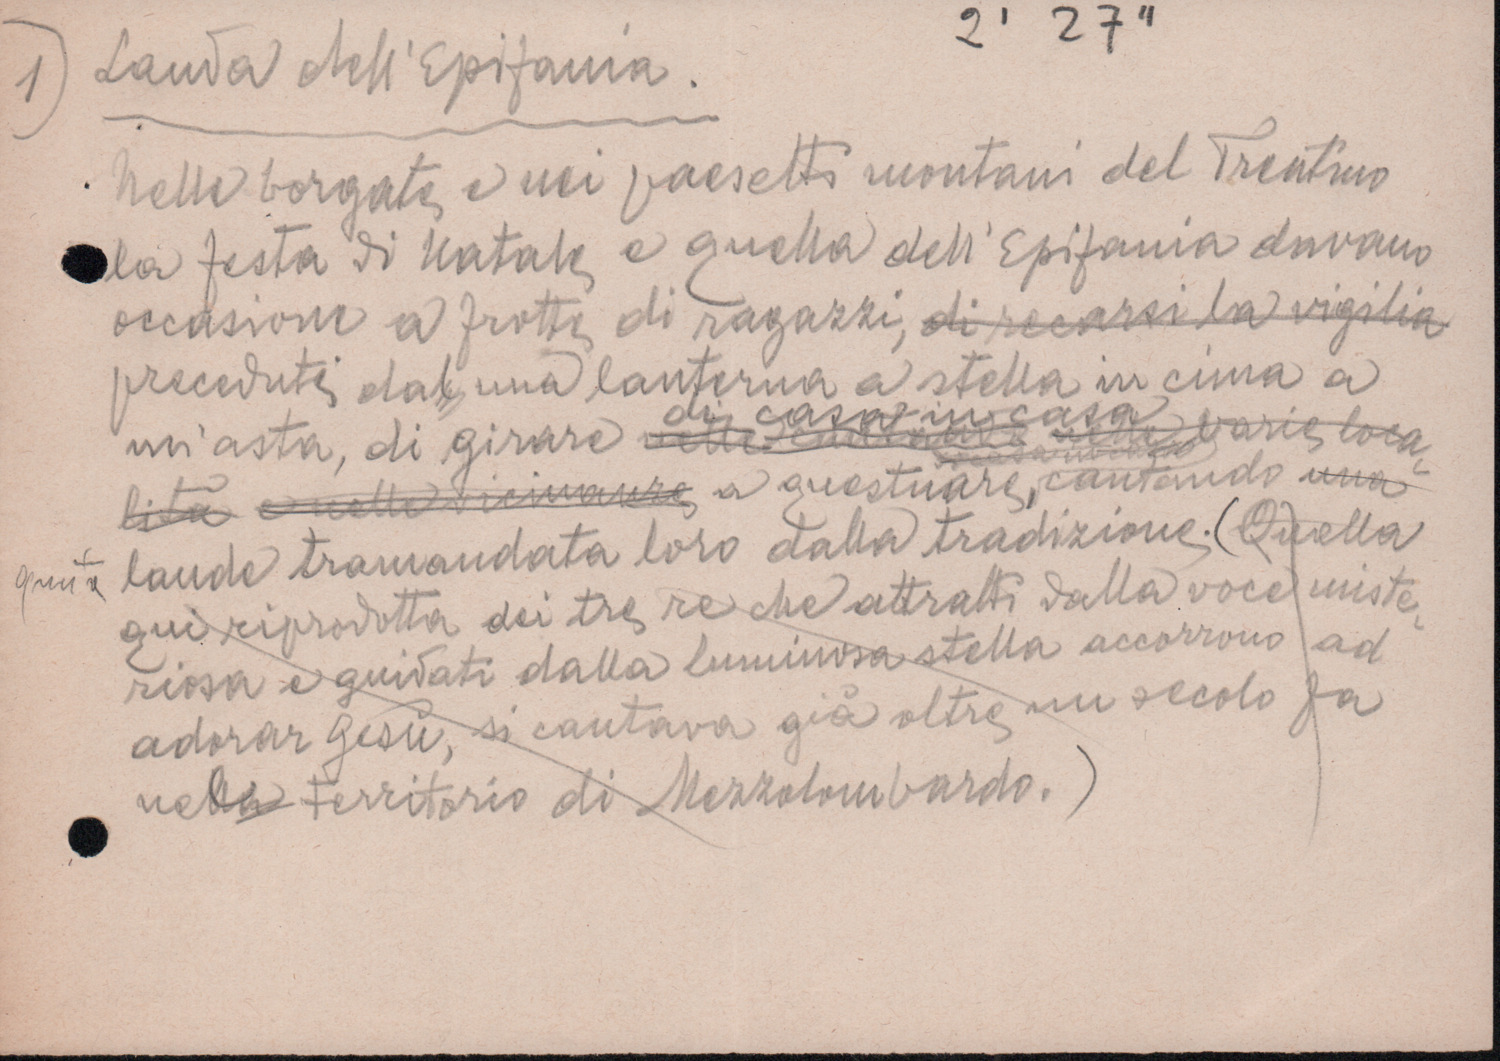 2' 27"
1) Lauda dell'Epifania.
Nelle borgate e nei paesetti montani del Trentino
la festa di Natale e quella dell'Epifania davano
occasione a frotte di ragazzi, di recarsi la vigilia
preceduti da una lanterna a stella in cima a
di casa in casa
un'asta, di girare varie loca-
lità e nelle vicinanze a questuare, cantando una
laude tramandata loro dalla tradizione. (Quella
qui riprodotta dei tre re che attratti dalla voce miste-
riosa e guidati dalla luminosa stella accorrono ad
adorar Gesù, si cantava già oltre un secolo fa
nel territorio di Mezzolombardo.)